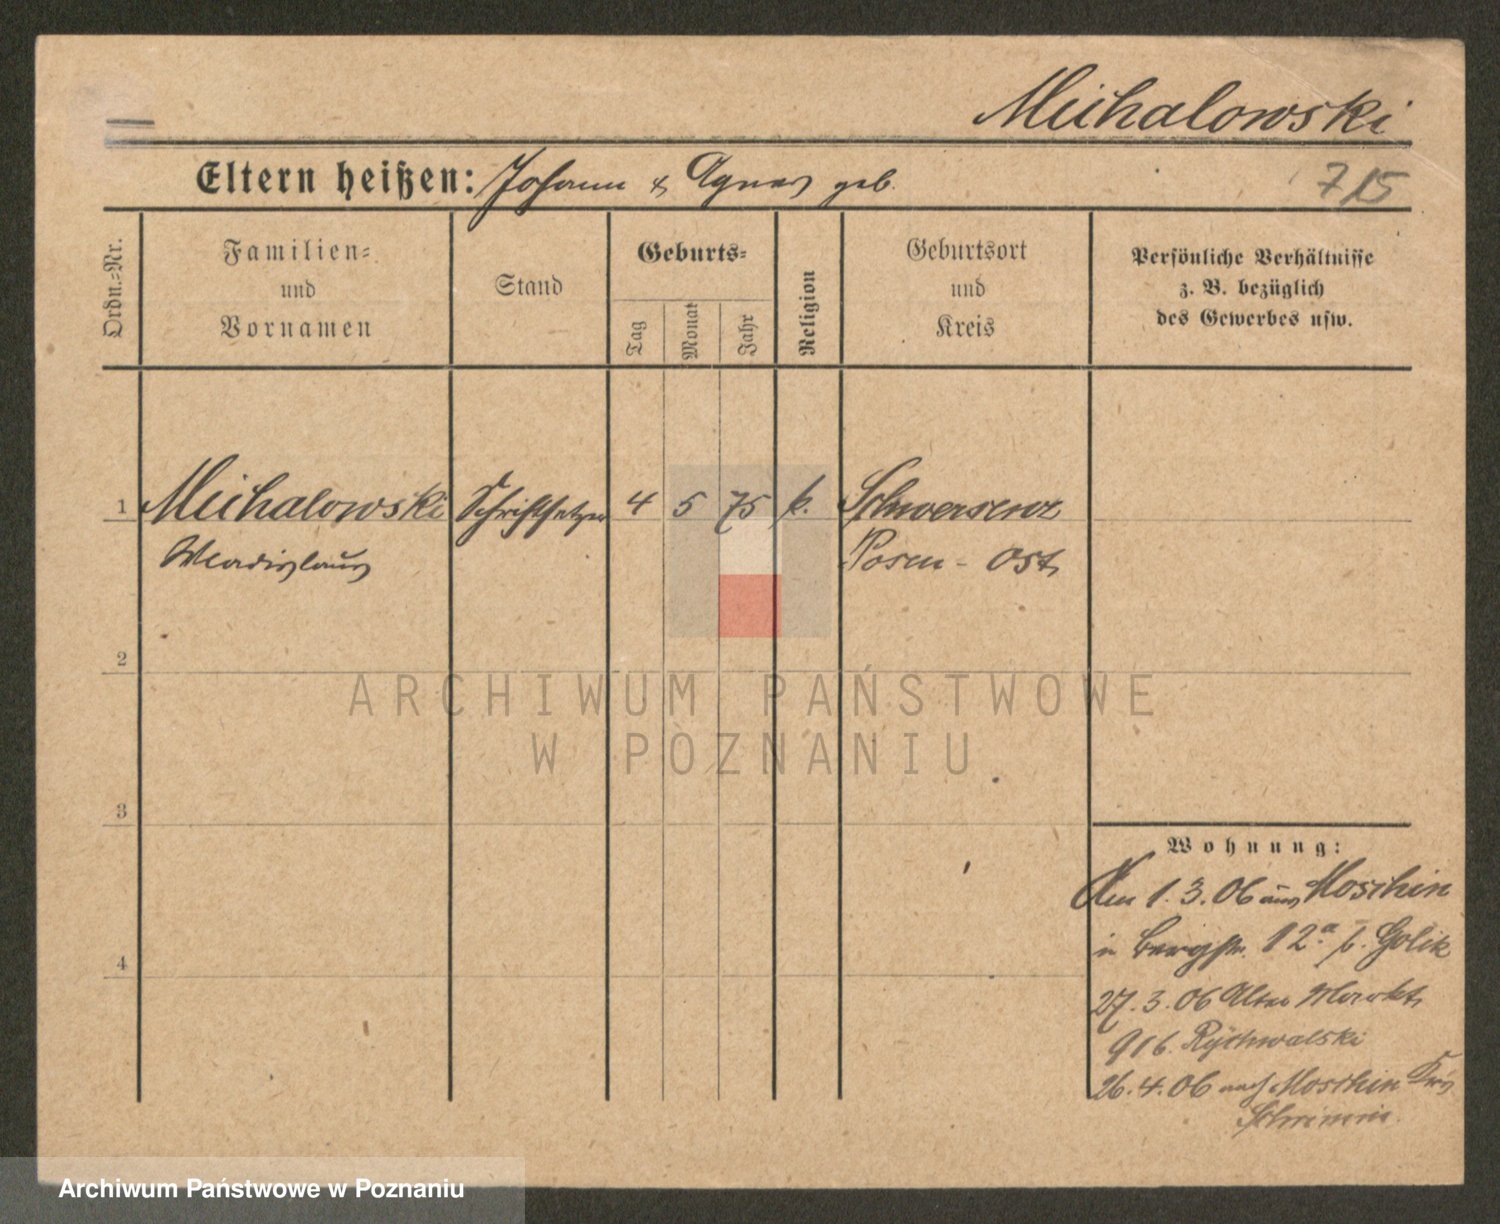 Michalowski
Eltern heißen: Johann & Agnes geb.
715
Ordn.=Nr.
Familien=
und
Vornamen
Stand
Geburts=
Tag
Monat
Jahr
Religion
Geburtsort
und
Kreis
Persönliche Verhältnisse
z. B. bezüglich
des Gewerbes usw.
1 Michalowski Schriftsetzer 4 5 75 k. Schwersenz
Wladislaus Posen - Ost
2
ARCHIWUM PAŃSTWOWE
W POZNANIU
3
Wohnung:
Am 1.3.06 aus Moschin
in Bergstr. 12a b. Golik
4
27.3.06 Alter Markt
9 I b. Rychwalski
26.4.06 nach Moschin Kreis
Schrimm.
Archiwum Państwowe w Poznaniu